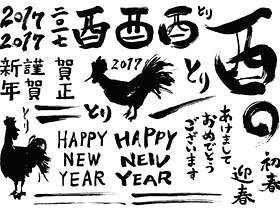 2017
2017
二〇一七
酉
酉
酉
とり
酉
謹賀
新年
賀正
2017
とり
とり
とり
あけまして
おめでとう
ございます
HAPPY
NEW
YEAR
HAPPY
NEW
YEAR
初春
迎春